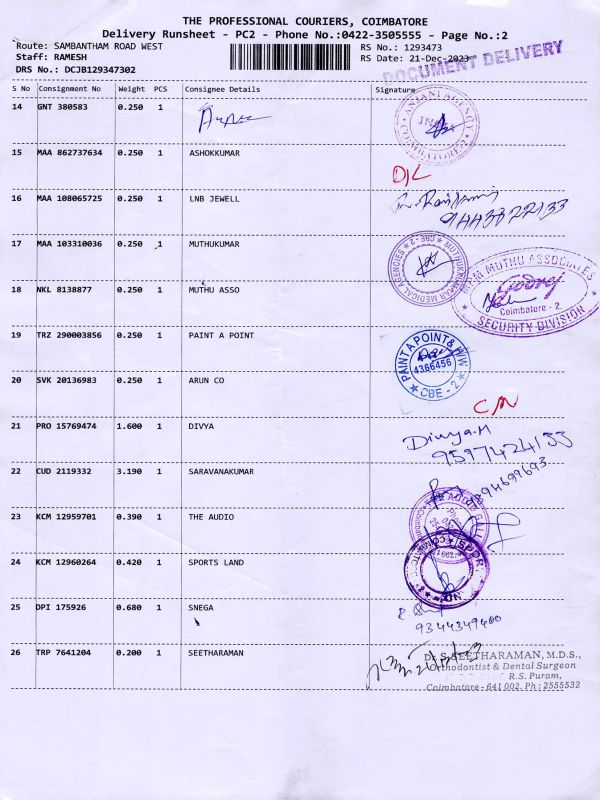 THE PROFESSIONAL COURIERS, COIMBATORE
Delivery Runsheet - PC2 - Phone No.:0422-3505555 - Page No.:2
Route: SAMBANTHAM ROAD WEST RS No.: 1293473
Staff: RAMESH RS Date: 21-Dec-2023
DRS No.: DCJB129347302 DOCUMENT DELIVERY
S No Consignment No Weight PCS Consignee Details Signature
14 GNT 380583 0.250 1 ANJANI AGENCY COIMBATORE-2
15 MAA 862737634 0.250 1 ASHOKKUMAR D/L
16 MAA 108065725 0.250 1 LNB JEWELL
9443322133
17 MAA 103310036 0.250 1 MUTHUKUMAR MUTHUKUMAR MEDICAL AGENCIES CBE-2
18 NKL 8138877 0.250 1 MUTHU ASSO MUTHU ASSOCIATES
Godrej
Coimbatore - 2.
SECURITY DIVISION
19 TRZ 290003856 0.250 1 PAINT A POINT PAINT A POINT
4386456
CBE - 2
20 SVK 20136983 0.250 1 ARUN CO
21 PRO 15769474 1.600 1 DIVYA Divya.M
9597424133
22 CUD 2119332 3.190 1 SARAVANAKUMAR
23 KCM 12959701 0.390 1 THE AUDIO
24 KCM 12960264 0.420 1 SPORTS LAND
25 DPI 175926 0.680 1 SNEGA
9344349400
26 TRP 7641204 0.200 1 SEETHARAMAN Dr.S.SEETHARAMAN, M.D.S.,
Orthodontist & Dental Surgeon
R.S. Puram,
Coimbatore - 641 002. Ph : 2555532